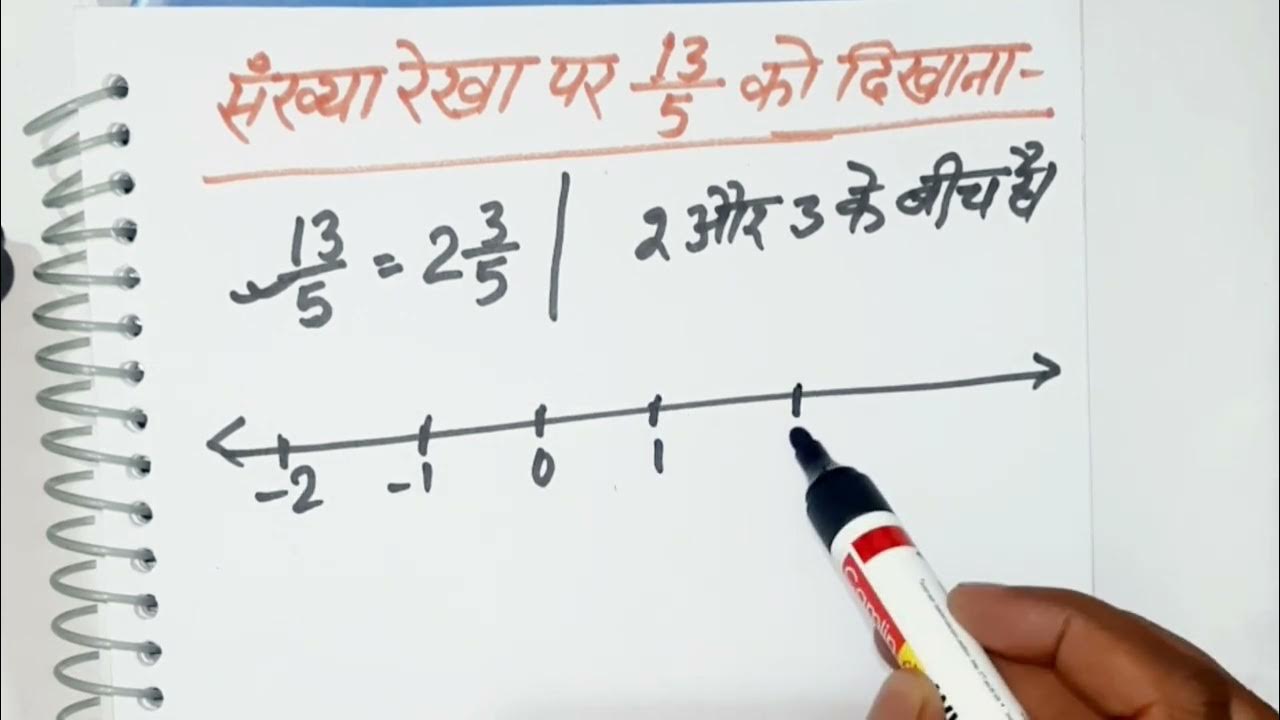 संख्या रेखा पर 13/5 को दिखाना-
13/5 = 2 3/5 | 2 और 3 के बीच है।
-2 -1 0 1
Camlin